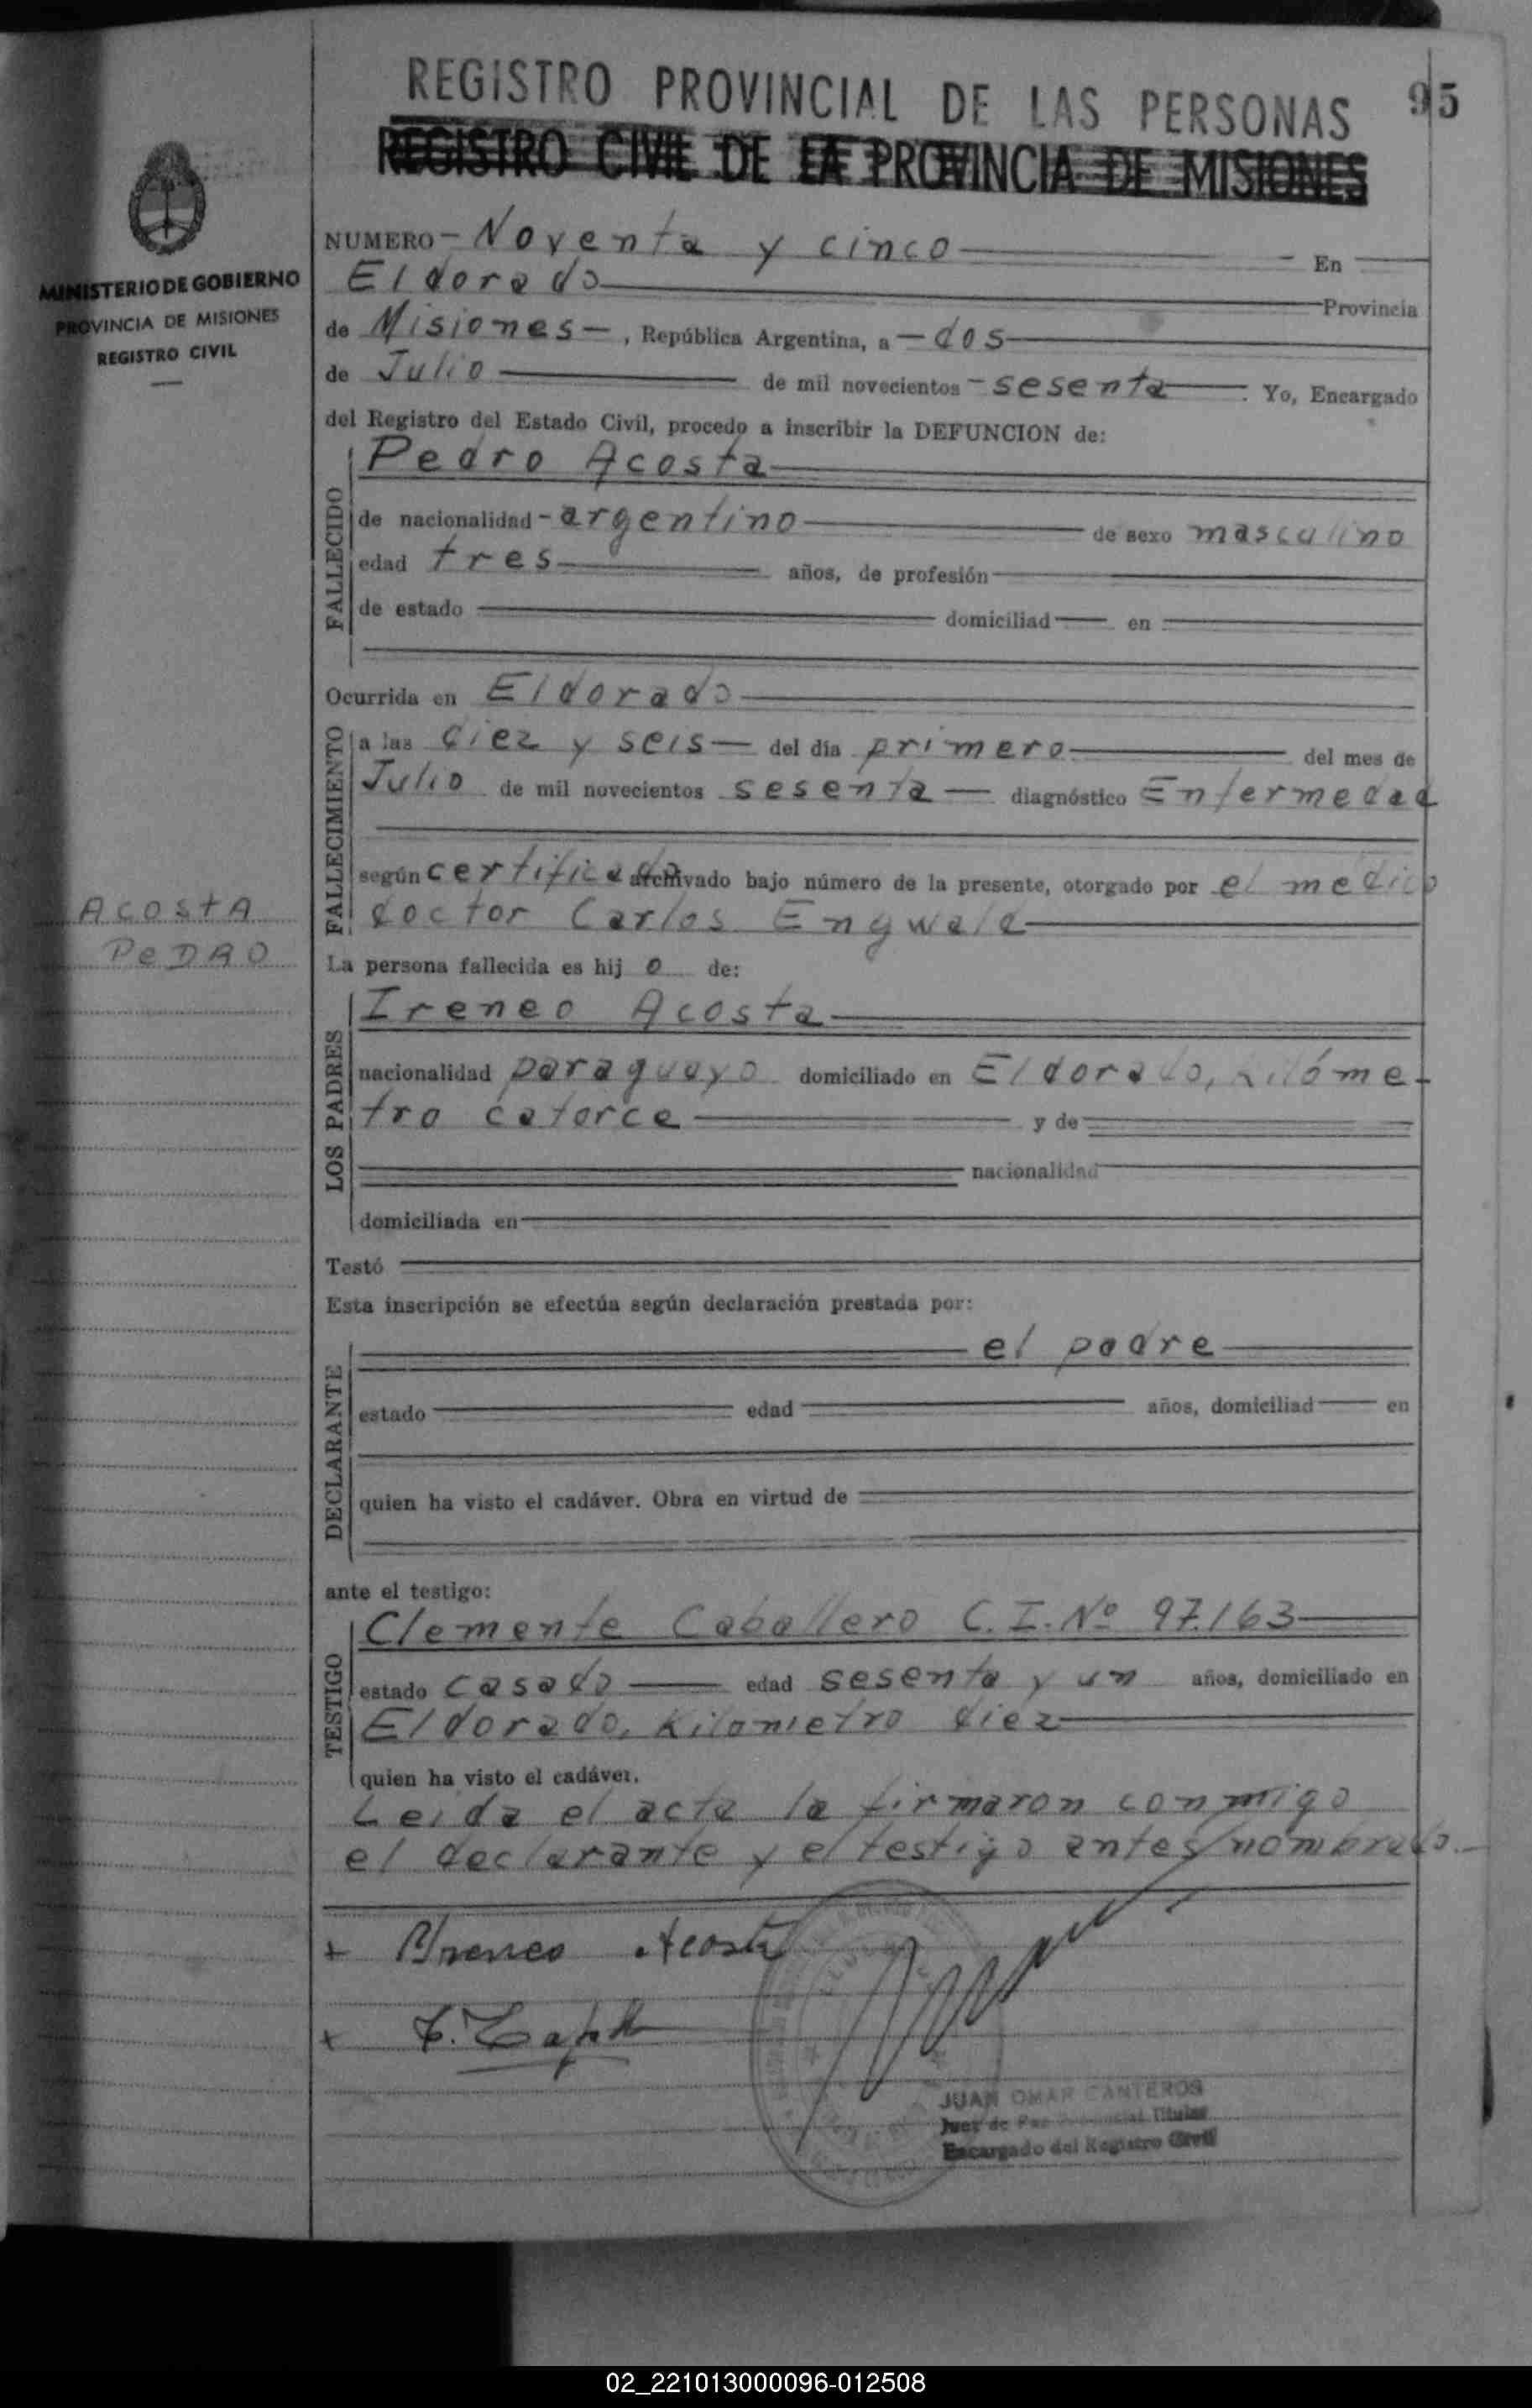 REGISTRO PROVINCIAL DE LAS PERSONAS 95
REGISTRO CIVIL DE LA PROVINCIA DE MISIONES
MINISTERIO DE GOBIERNO
PROVINCIA DE MISIONES
REGISTRO CIVIL
NUMERO - Noventa y cinco En
Eldorado Provincia
de Misiones - , República Argentina, a - dos
de Julio de mil novecientos - sesenta . Yo, Encargado
del Registro del Estado Civil, procedo a inscribir la DEFUNCION de:
FALLECIDO
Pedro Acosta
de nacionalidad - argentino de sexo masculino
edad tres años, de profesión
de estado domiciliad en
Ocurrida en Eldorado
FALLECIMIENTO
a las diez y seis - del día primero del mes de
Julio de mil novecientos sesenta - diagnóstico Enfermedad
según certificado archivado bajo número de la presente, otorgado por el medico
doctor Carlos Engwald
ACOSTA
PEDRO
La persona fallecida es hij o de:
LOS PADRES
Ireneo Acosta
nacionalidad paraguayo domiciliado en Eldorado, kilóme-
tro catorce y de
nacionalidad
domiciliada en
Testó
Esta inscripción se efectúa según declaración prestada por:
DECLARANTE
el padre
estado edad años, domiciliad en
quien ha visto el cadáver. Obra en virtud de
ante el testigo:
TESTIGO
Clemente Caballero C.I. Nº 97.163
estado casado edad sesenta y un años, domiciliado en
Eldorado, Kilometro diez
quien ha visto el cadáver.
Leida el acta la firmaron conmigo
el declarante y el testigo antes nombrado.-
+ Acosta
+
JUAN OMAR CANTEROS
Juez de Paz Provincial Titular
Encargado del Registro Civil
02_221013000096-012508